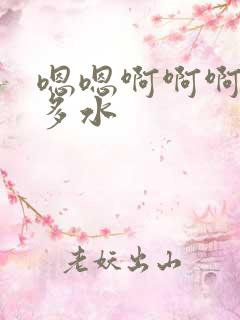 嗯嗯啊啊啊
多水
老妖出山